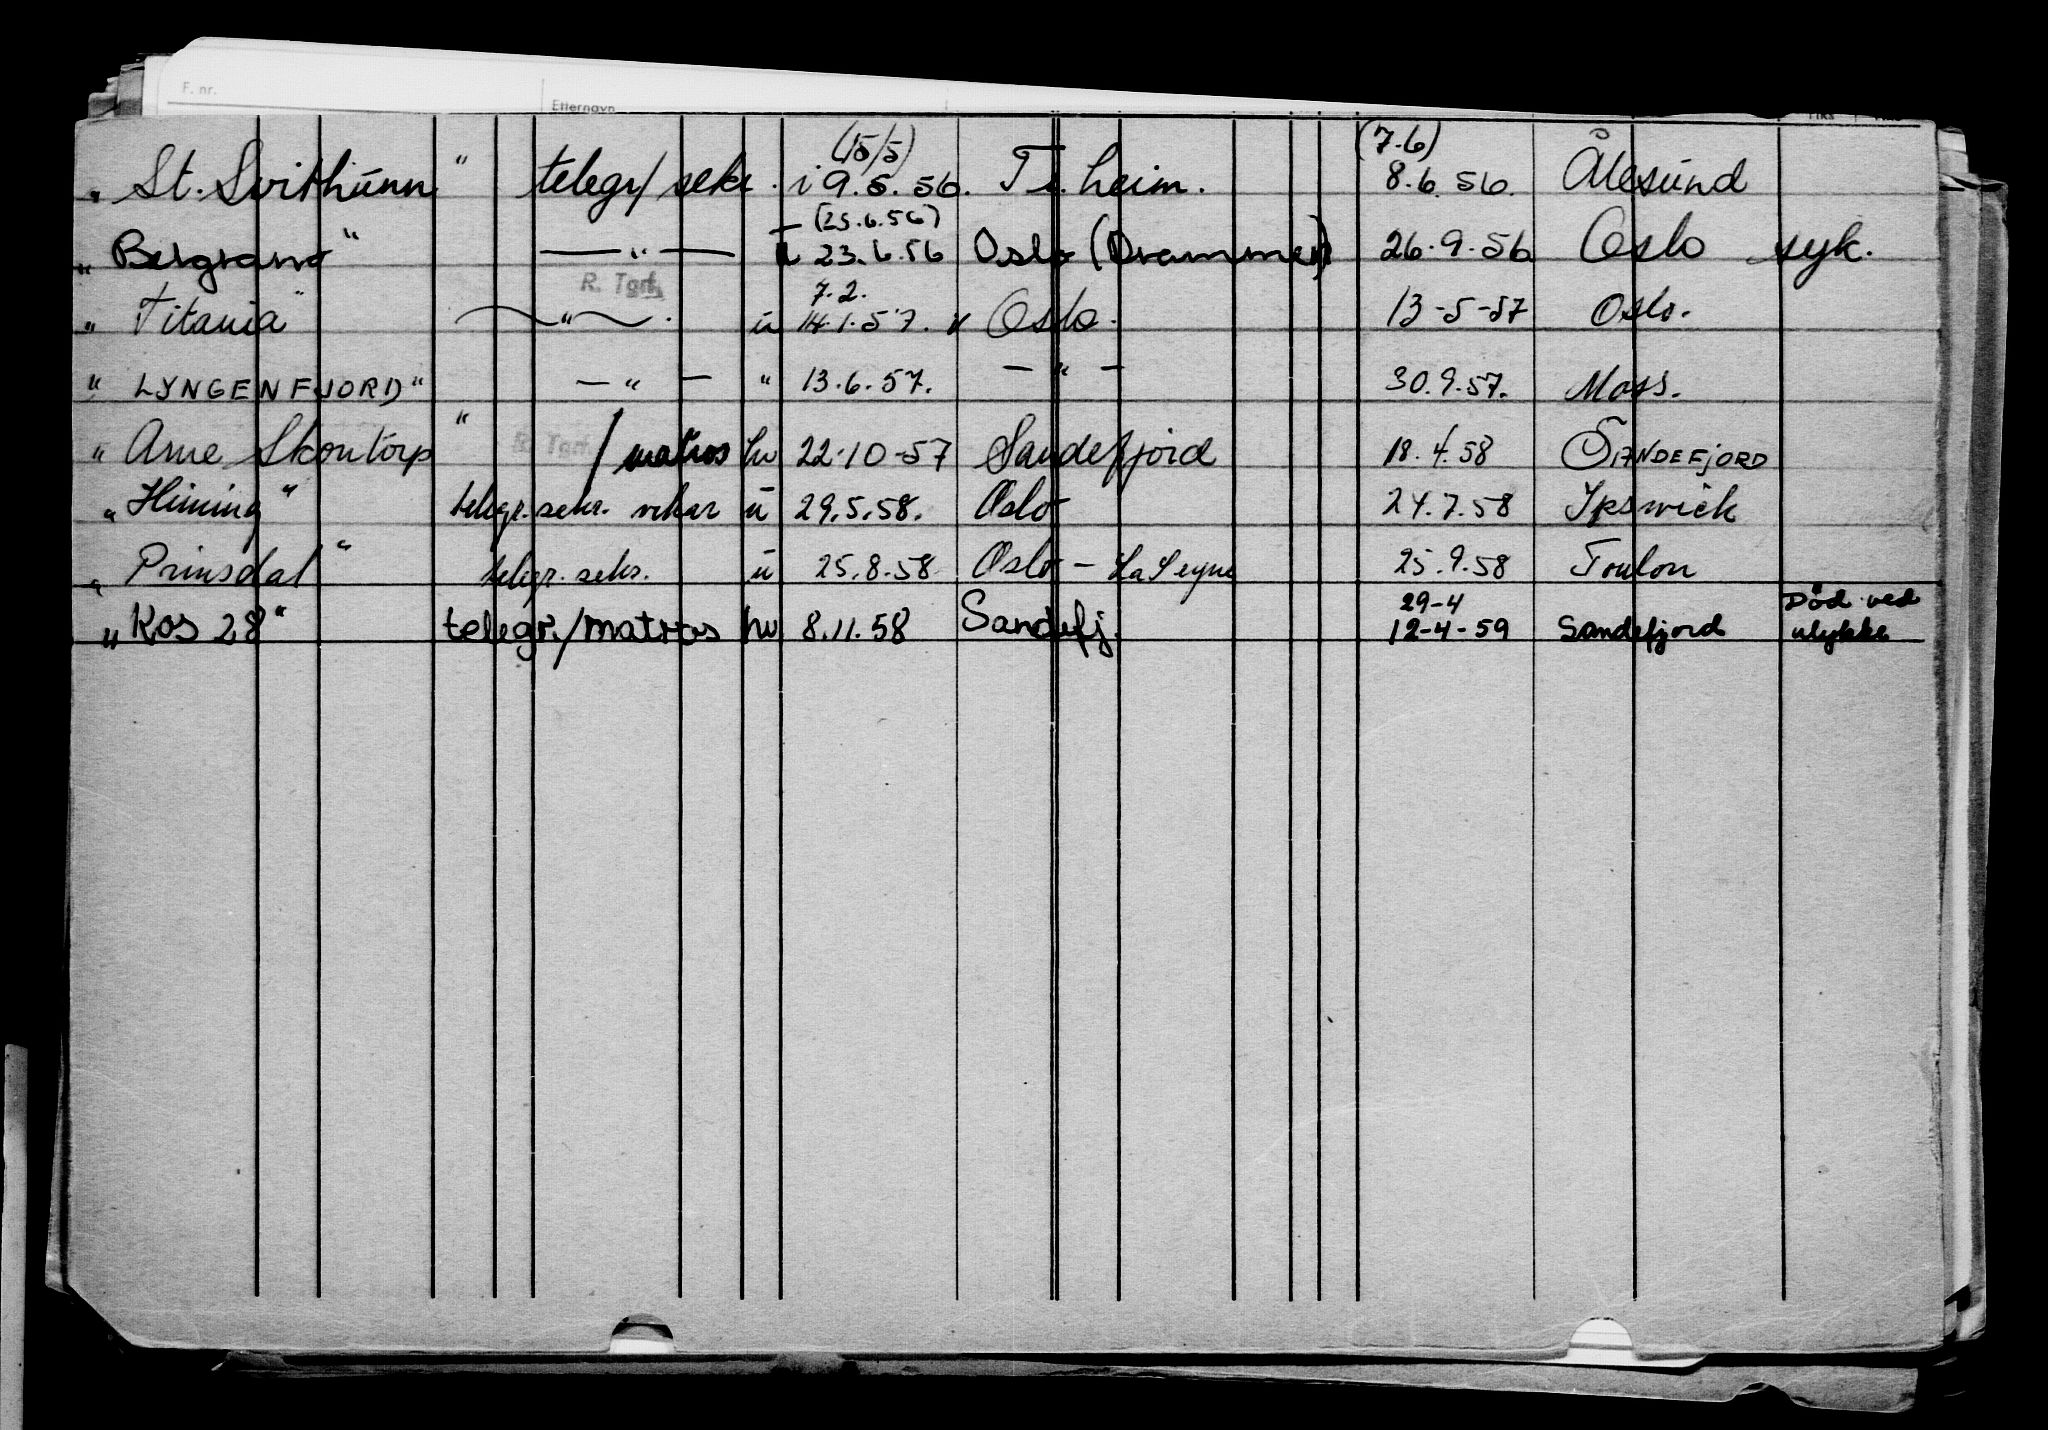 F. nr. Etternavn
(15/5) (7.6)
" St. Svithunn " telegr/sekr. i 9.5.56. Tr.heim. 8.6.56. Ålesund
(25.6.56)
" Belgrano " — " — u 23.6.56 Oslo (Drammen) 26.9.56 Oslo syk.
R. Tgrf. 7.2.
" Titania " — " — . u 14.1.57. v Oslo. 13-5-57 Oslo.
" LYNGENFJORD " — " — " 13.6.57. — " — 30.9.57. Moss.
" Arne Skontorp " R. Tgrf. / matros hv 22-10-57 Sandefjord 18.4.58 SANDEFJORD
" Himing " telegr. sekr. vikar u 29.5.58. Oslo 24.7.58 Ipswick
" Prinsdal " telegr. sekr. u 25.8.58 Oslo - La Seyne 25.9.58 Toulon
29-4 Død ved
" Kos 28 " telegr./matros hv 8.11.58 Sandefj. 12-4-59 Sandefjord ulykke